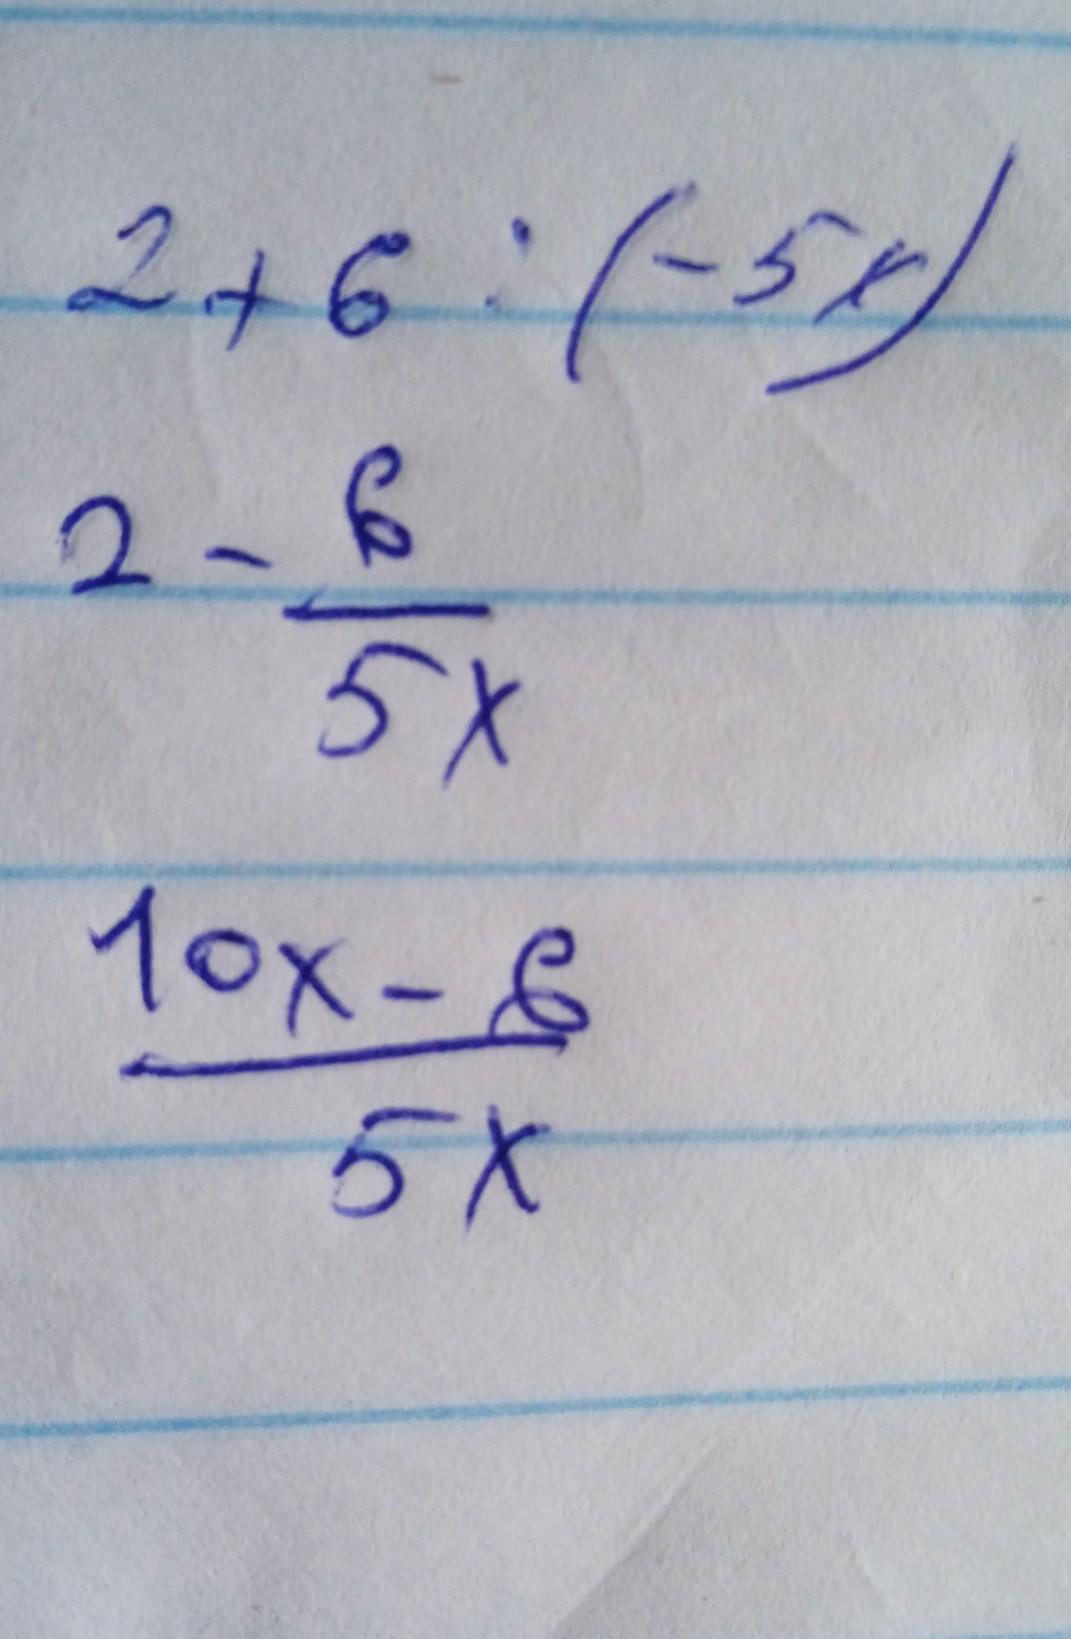 2 + 6 : (-5x)
2 - 6/5x
10x - 6/5x